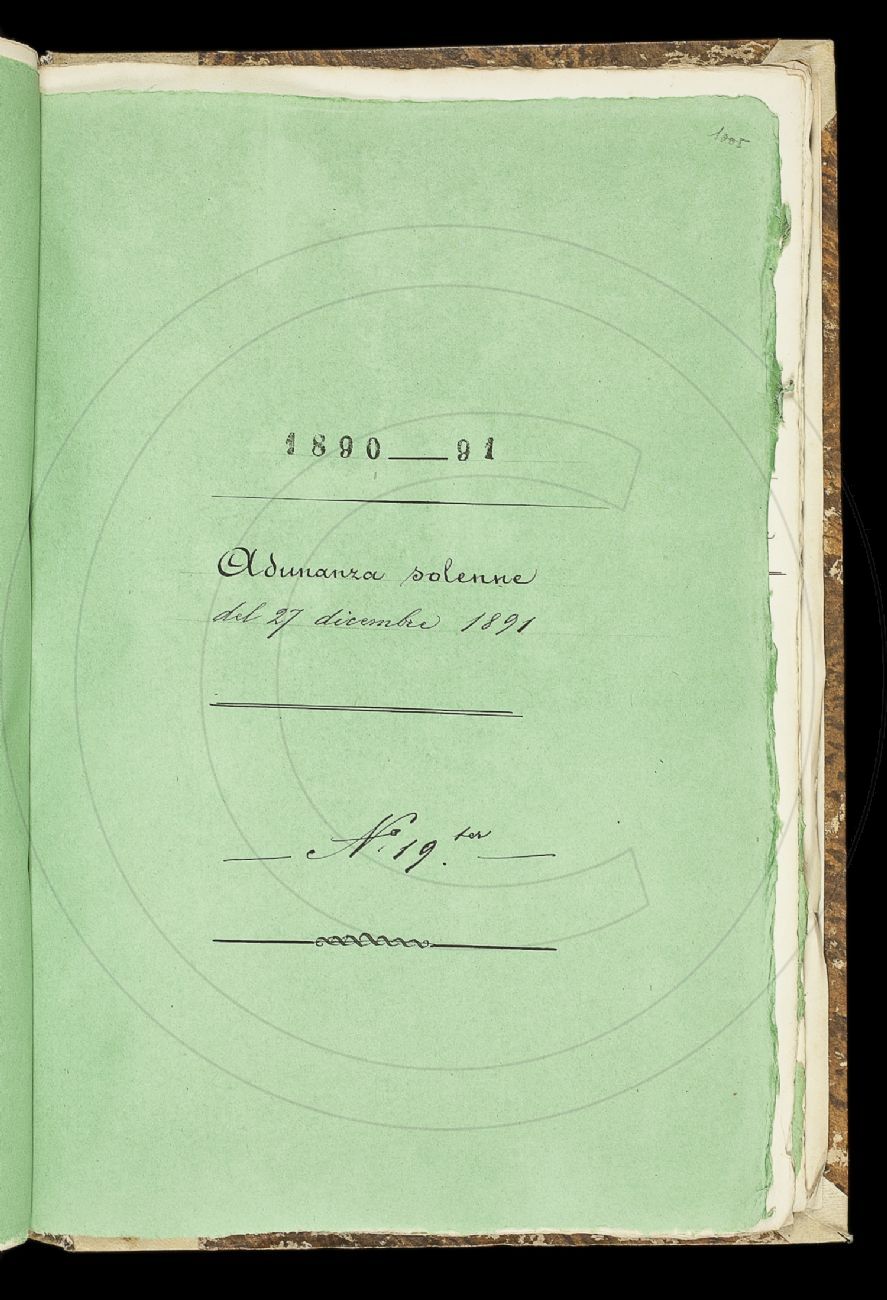 1005
1890 — 91
Adunanza solenne
del 27 dicembre 1891
— N.º 19.ter —